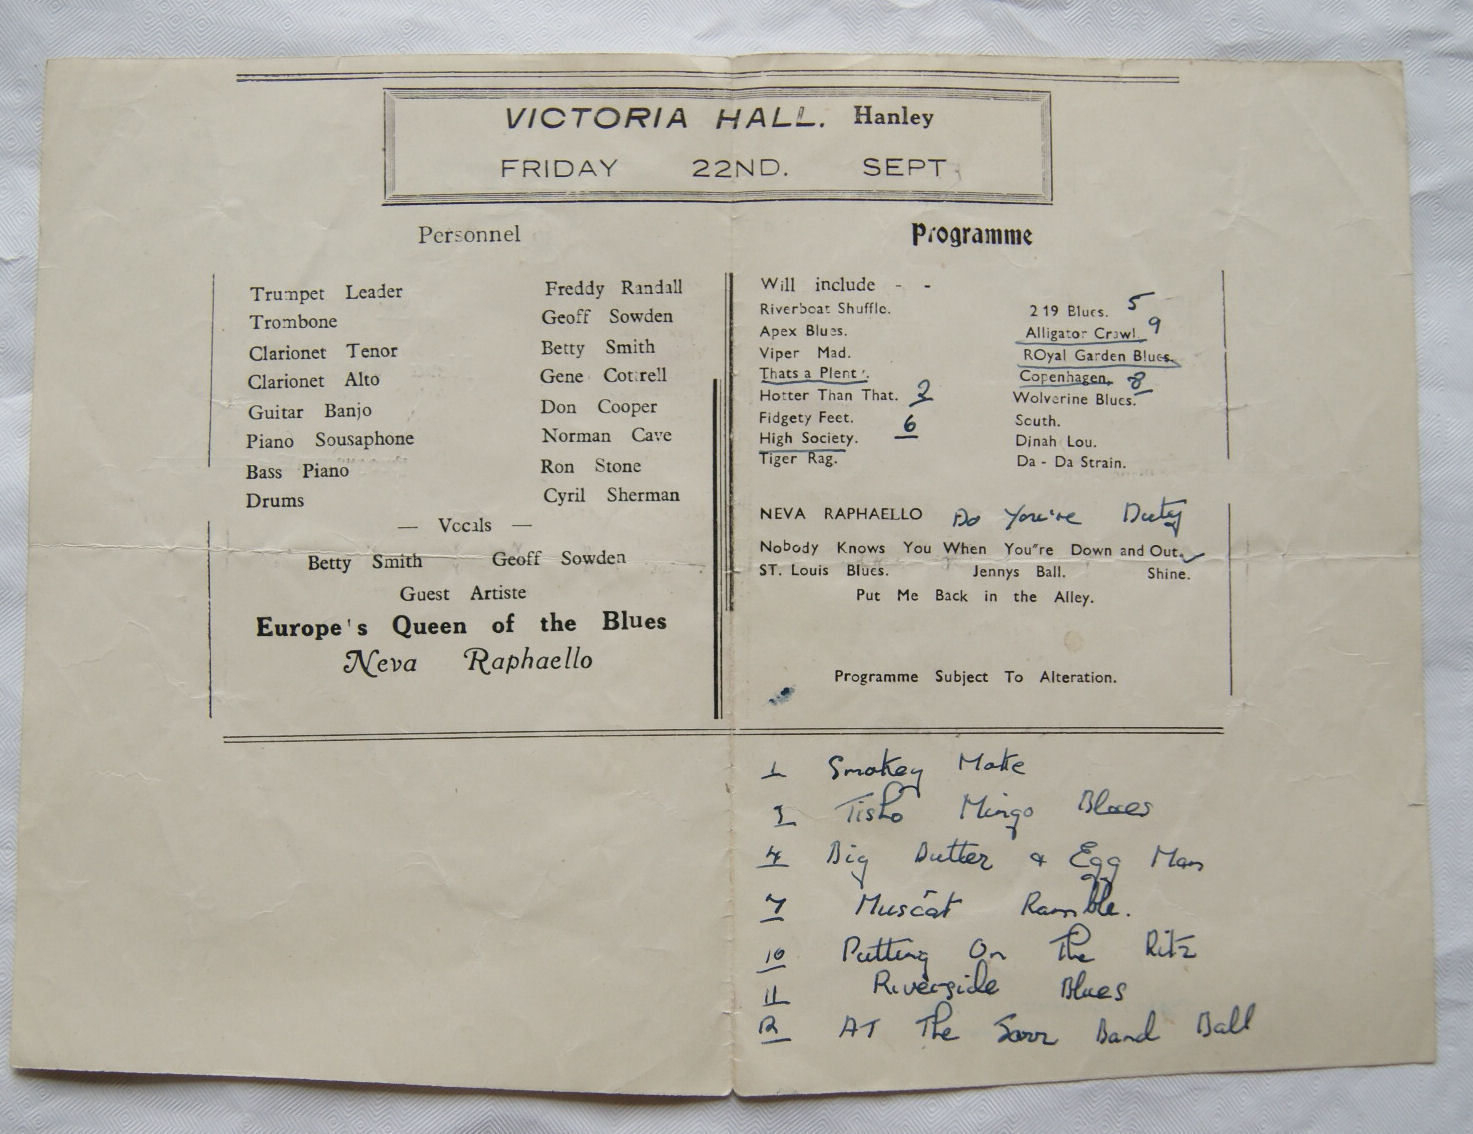 VICTORIA HALL. Hanley
FRIDAY 22ND. SEPT
Personnel
Trumpet Leader Freddy Randall
Trombone Geoff Sowden
Clarionet Tenor Betty Smith
Clarionet Alto Gene Cottrell
Guitar Banjo Don Cooper
Piano Sousaphone Norman Cave
Bass Piano Ron Stone
Drums Cyril Sherman
— Vocals —
Betty Smith Geoff Sowden
Guest Artiste
Europe's Queen of the Blues
Neva Raphaello
Programme
Will include - -
Riverboat Shuffle. 2 19 Blues. 5
Apex Blues. Alligator Crawl. 9
Viper Mad. ROyal Garden Blues.
Thats a Plent. Copenhagen. 8
Hotter Than That. Wolverine Blues.
Fidgety Feet. 6 South.
High Society. Dinah Lou.
Tiger Rag. Da - Da Strain.
NEVA RAPHAELLO Do You're Duty
Nobody Knows You When You"re Down and Out.
ST. Louis Blues. Jennys Ball. Shine.
Put Me Back in the Alley.
Programme Subject To Alteration.
1 Smokey Moke
Tisho Mingo Blues
4 Big Butter & Egg Man
7 Muscat Ramble.
10 Putting On The Ritz
11 Riverside Blues
12 AT The Band Ball